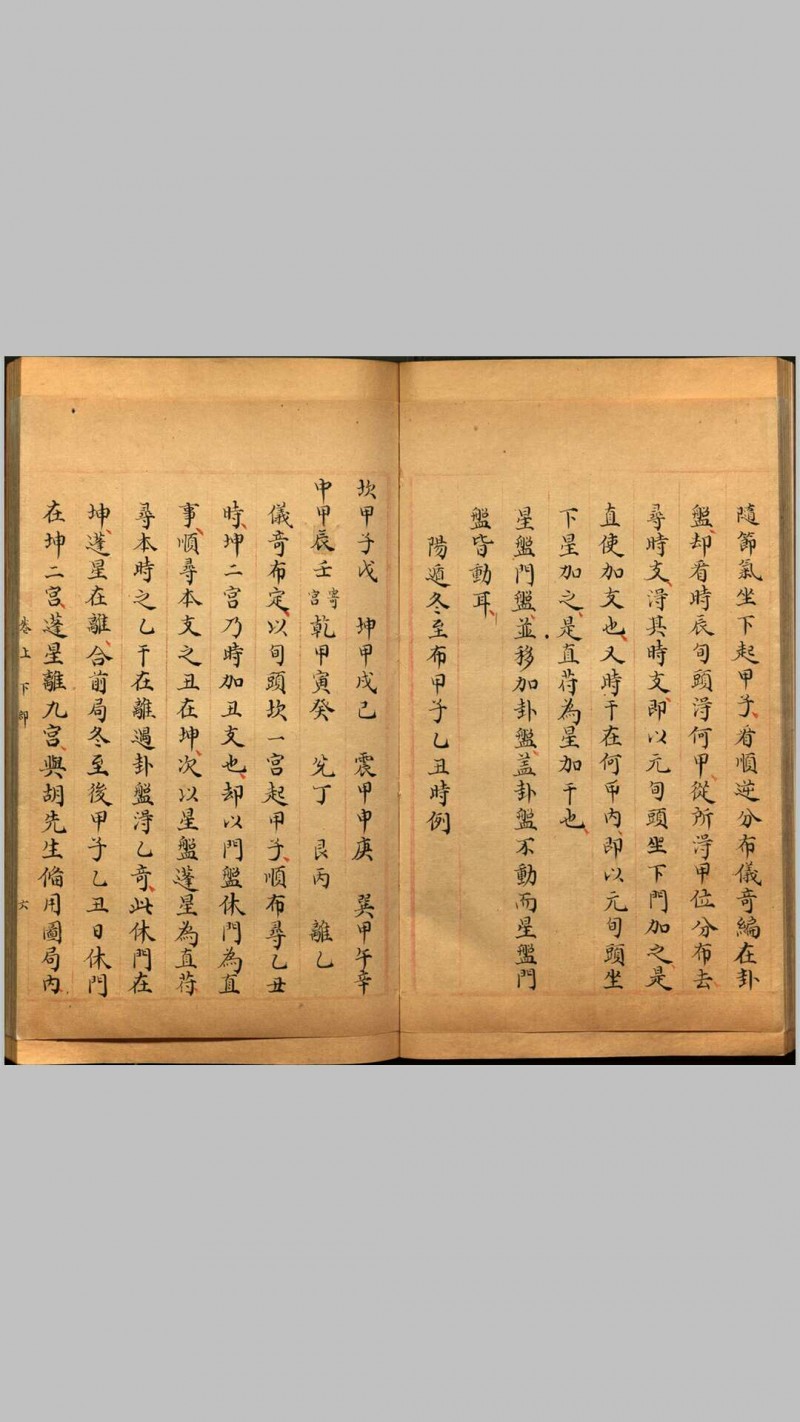 隨節氣坐下起甲子看順逆分布儀奇編在卦
盤却看時辰旬頭淂何甲從所淂甲位分布去
尋時支淂其時支即以元旬頭坐下門加之是
直使加支也又時干在何甲內即以元旬頭坐
下星加之是直苻為星加干也
星盤門盤並移加卦盤蓋卦盤不動而星盤門
盤皆動耳
陽遁冬至布甲子乙丑時例
坎甲子戊 坤甲戌己 震甲申庚 巽甲午辛
中甲辰壬寄宮乾甲寅癸 兌丁 艮丙 離乙
儀奇布定以旬頭坎一宮起甲子順布尋乙丑
時坤二宮乃時加丑支也却以門盤休門為直
事順尋本支之丑在坤次以星盤蓬星為直苻
尋本時之乙干在離遇卦盤淂乙奇此休門在
坤蓬星在離合前局冬至後甲子乙丑日休門
在坤二宮蓬星離九宮與胡先生偹用圖局內
卷上 下卽 六